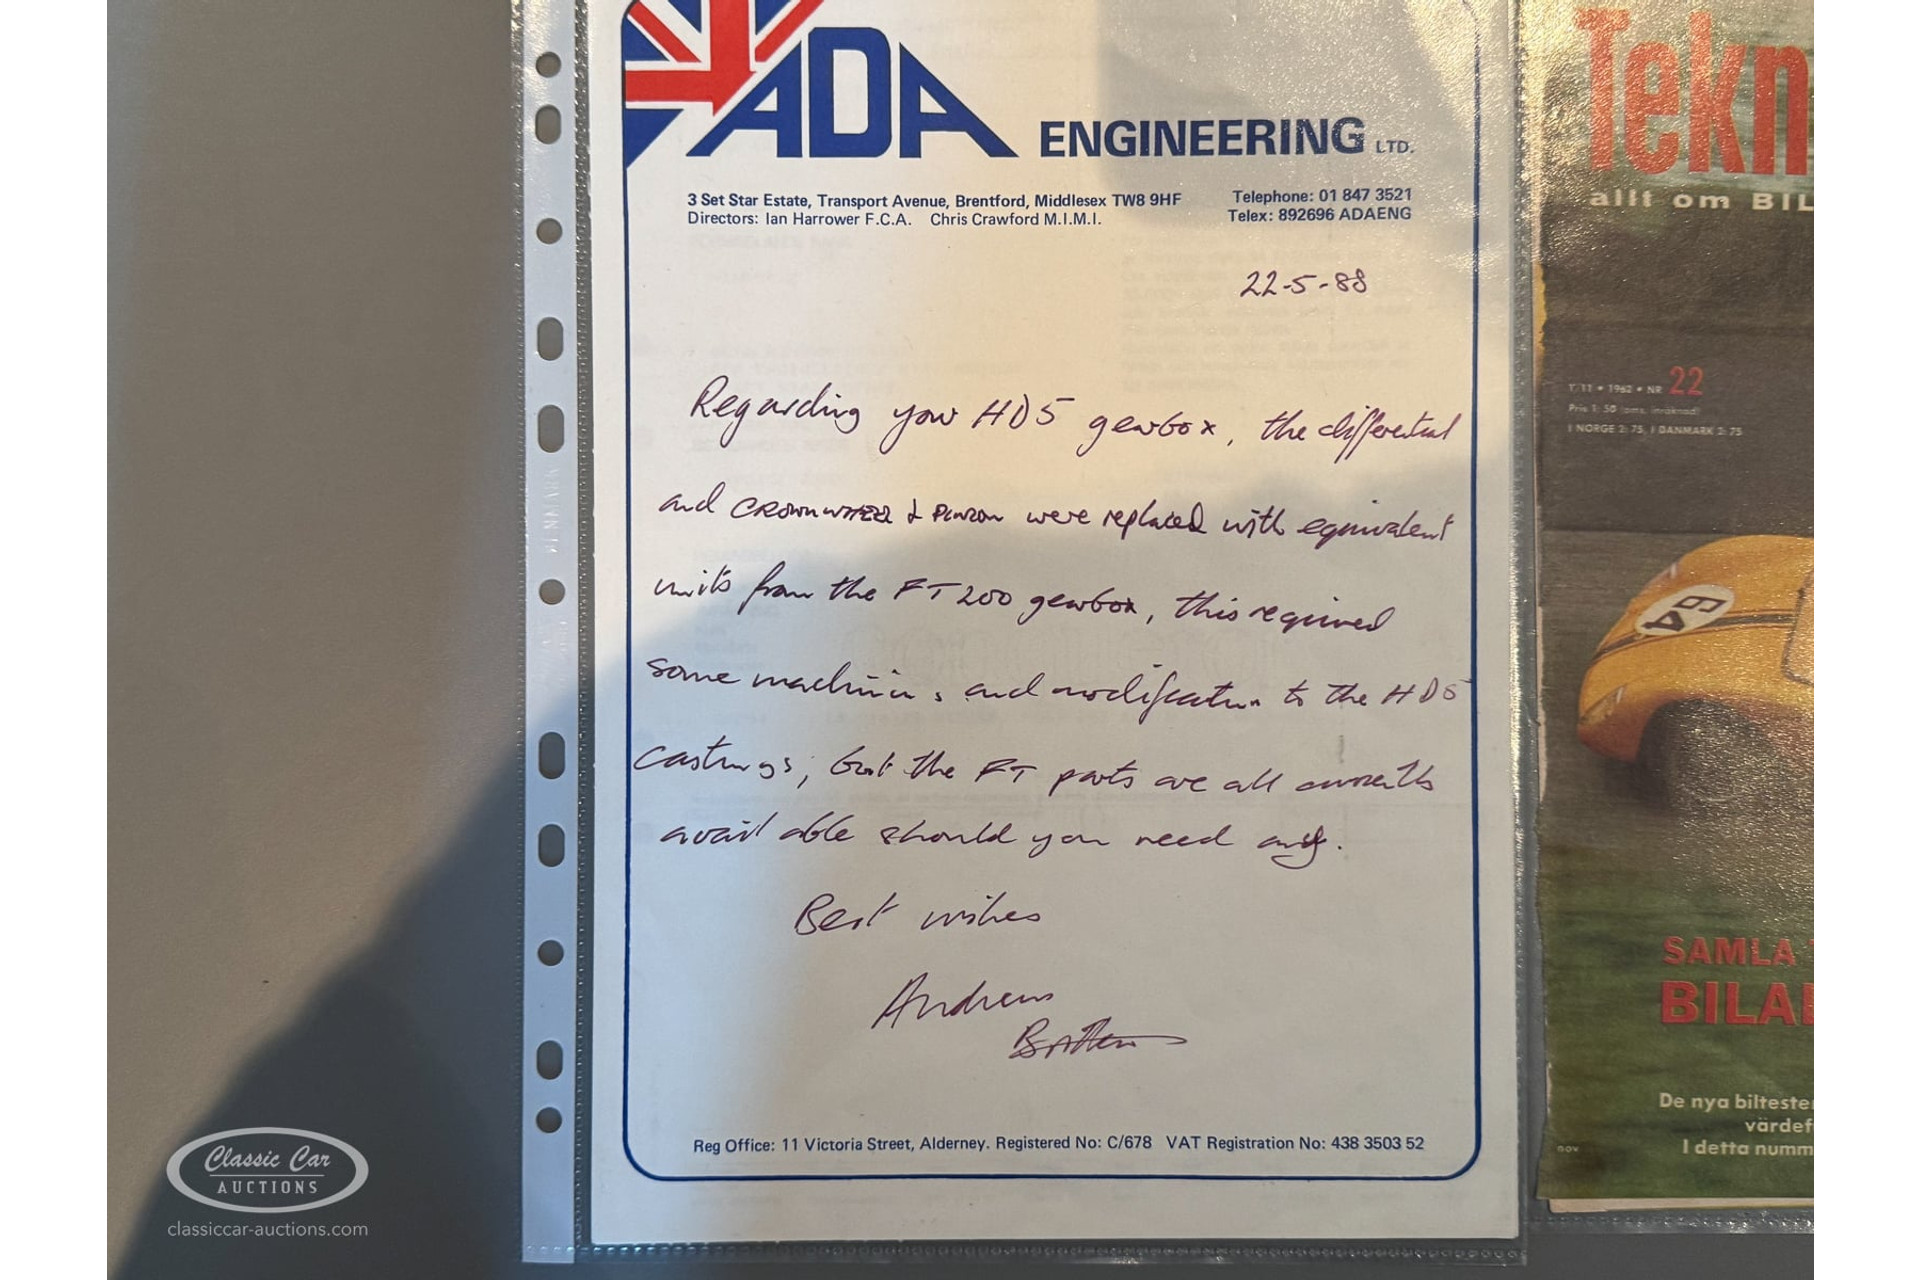 ADA ENGINEERING LTD.
3 Set Star Estate, Transport Avenue, Brentford, Middlesex TW8 9HF
Directors: Ian Harrower F.C.A. Chris Crawford M.I.M.I.
Telephone: 01 847 3521
Telex: 892696 ADAENG
22-5-88
Regarding your HD5 gearbox, the differential
and CROWNWHEEL & PINION were replaced with equivalent
units from the FT200 gearbox, this required
some machining and modification to the HD5
castings, but the FT parts are all currently
available should you need any.
Best wishes
Andrew
Reg Office: 11 Victoria Street, Alderney. Registered No: C/678 VAT Registration No: 438 3503 52
Tekn
allt om BIL
1/11 • 1962 • NR 22
Pris 1:50 (oms. inräknad)
I NORGE 2:75, I DANMARK 2:75
64
SAMLA
BILA
De nya bilteste
värdef
I detta numm
DENMARK
Classic Car
AUCTIONS
classiccar-auctions.com